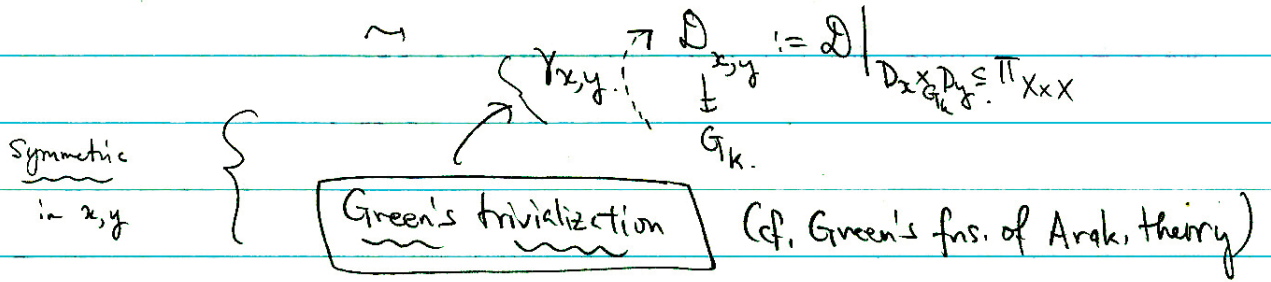 ~→ γx,y ↗ Dx,y := D|Dx×GkDy ⊆ ΠX×X
↓
Gk.
Symmetric
in x,y
Green's trivialization (cf. Green's fns. of Arak. theory)